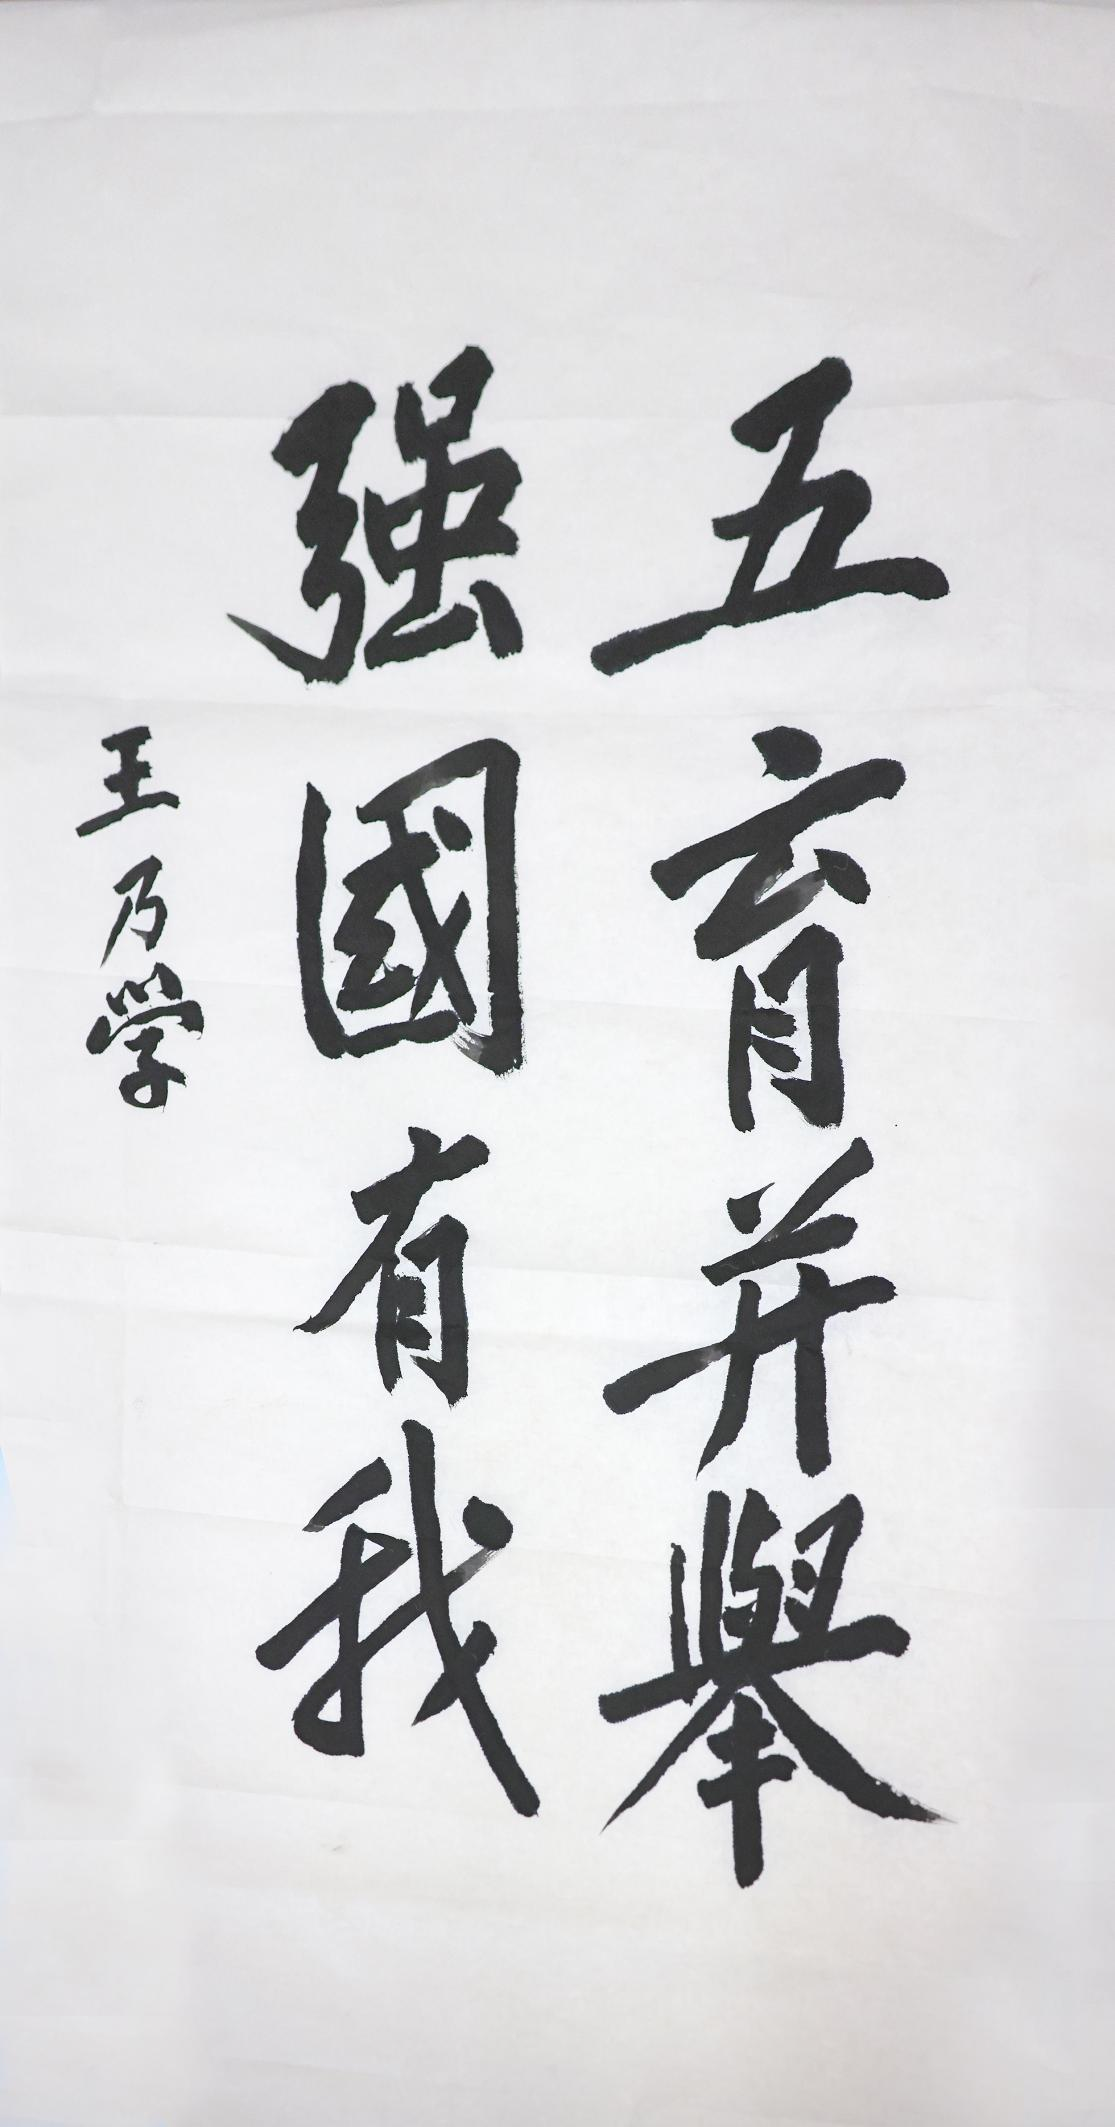 五育并舉
强國有我
王乃学